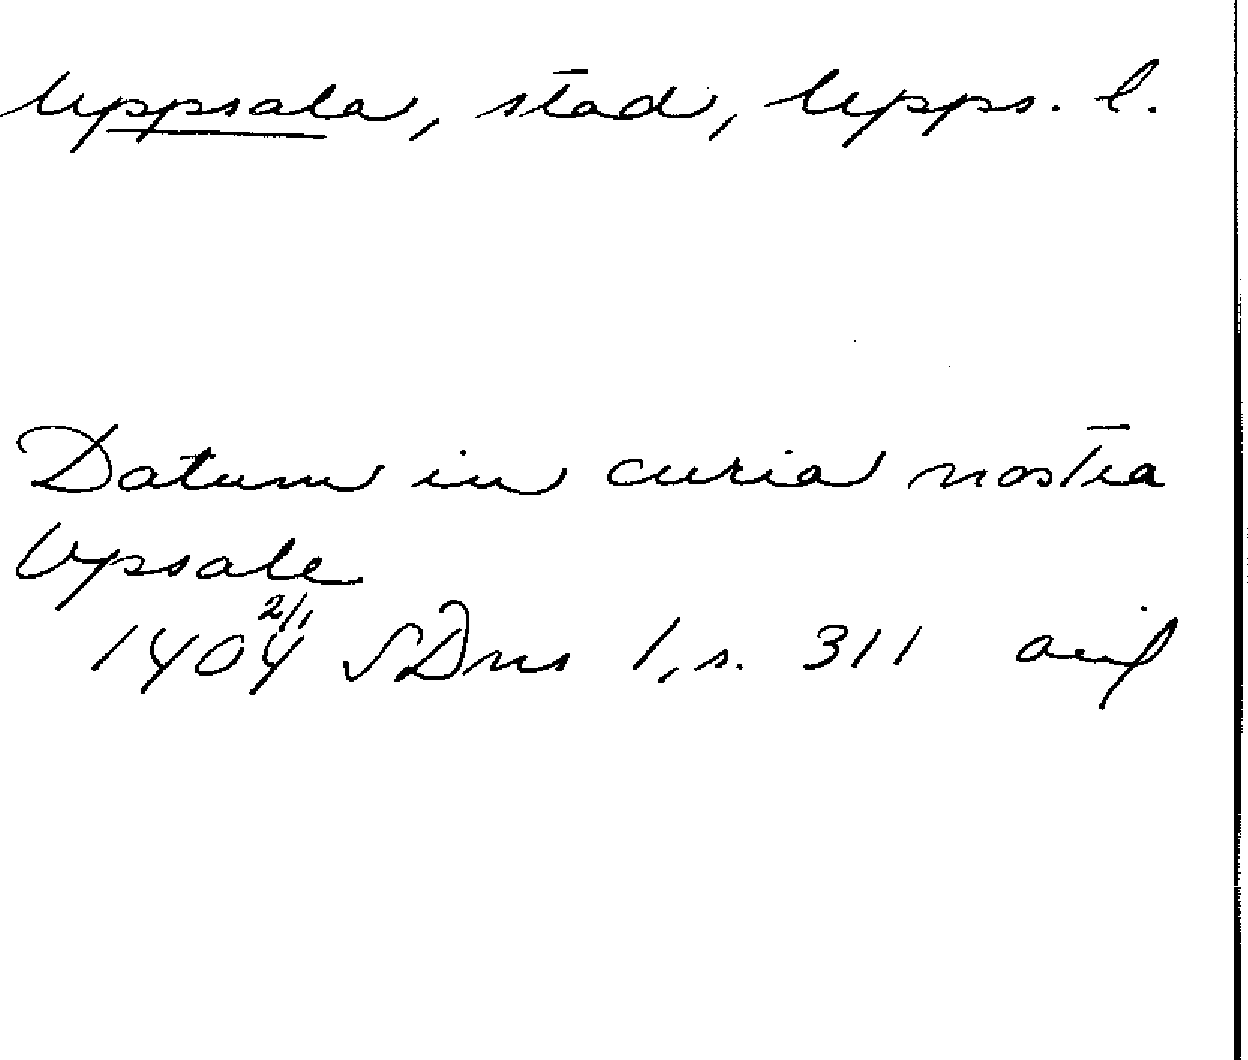 Uppsala, stad, Upps. l.
Datum in curia nostra
Upsale
1404 2/1 SDns 1, s. 311